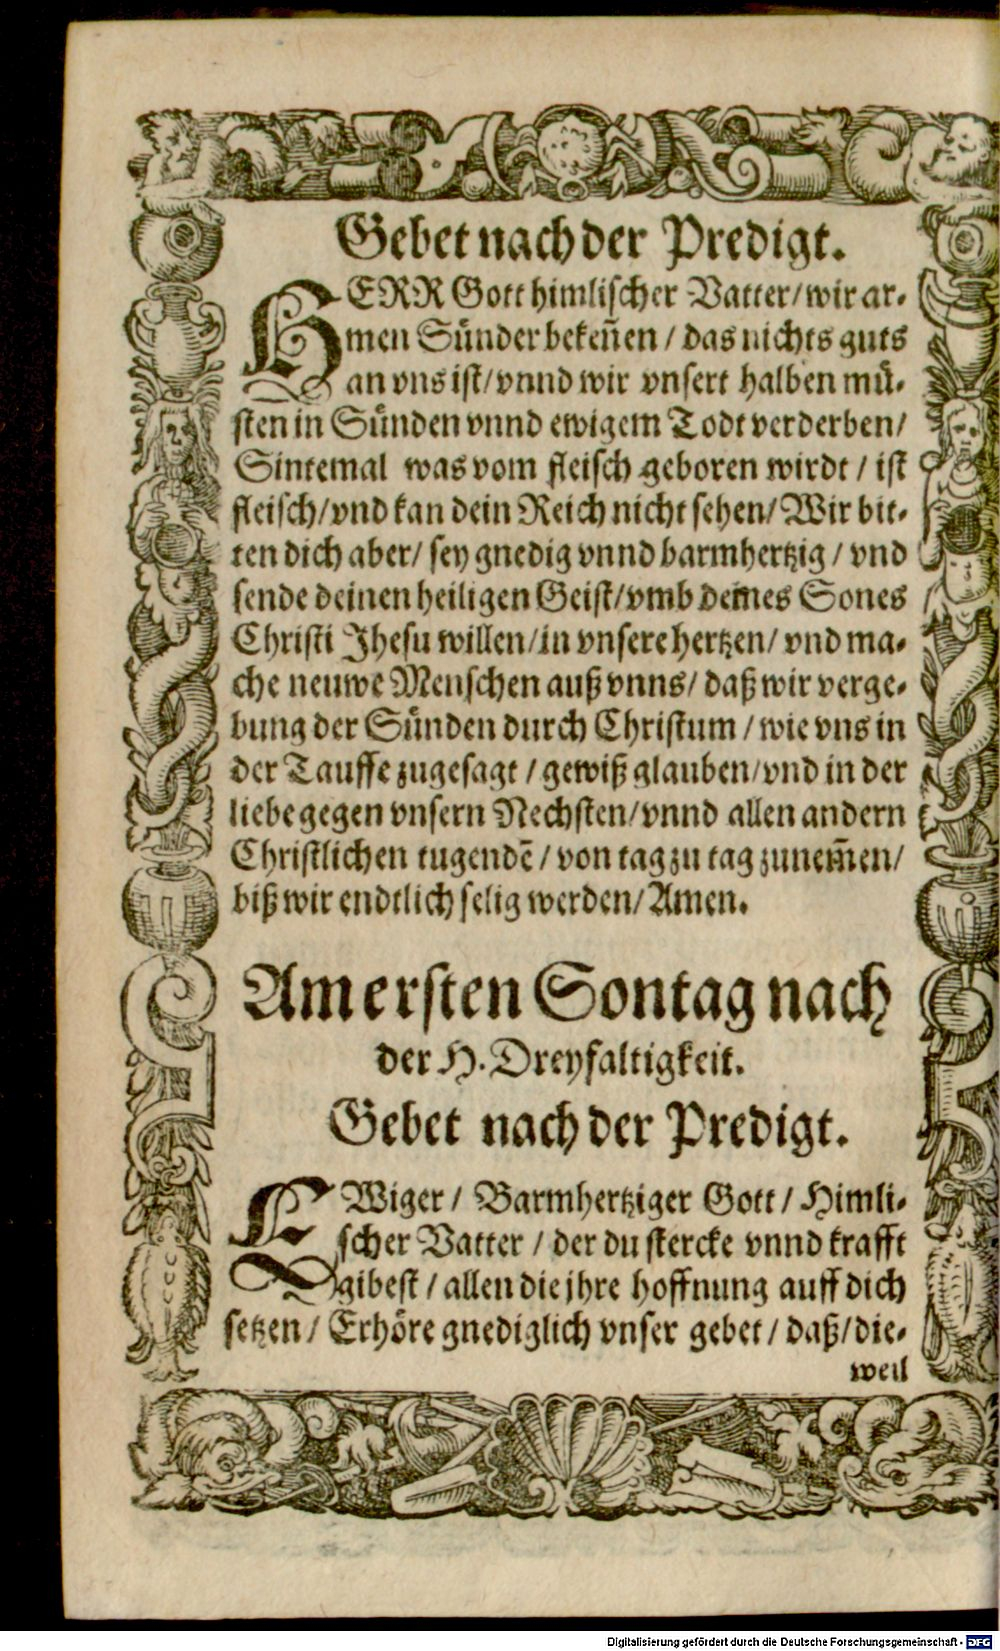 Gebet nach der Predigt.
HERR Gott himlischer Vatter/ wir ar-
men Sünder bekeñen / das nichts guts
an vns ist/ vnnd wir vnsert halben mü-
sten in Sünden vnnd ewigem Todt verderben/
Sintemal was vom fleisch geboren wirdt / ist
fleisch/ vnd kan dein Reich nicht sehen/ Wir bit-
ten dich aber/ sey gnedig vnnd barmhertzig / vnd
sende deinen heiligen Geist/ vmb deines Sones
Christi Jhesu willen/ in vnsere hertzen/ vnd ma-
che neuwe Menschen auß vnns/ daß wir verge-
bung der Sünden durch Christum / wie vns in
der Tauffe zugesagt / gewiß glauben/ vnd in der
liebe gegen vnsern Nechsten/ vnnd allen andern
Christlichen tugendē / von tag zu tag zunem̃en/
biß wir endtlich selig werden/ Amen.
Am ersten Sontag nach
der H. Dreyfaltigkeit.
Gebet nach der Predigt.
EWiger / Barmhertziger Gott / Himli-
scher Vatter / der du stercke vnnd krafft
gibest / allen die jhre hoffnung auff dich
setzen / Erhöre gnediglich vnser gebet / daß/ die-
weil
Digitalisierung gefördert durch die Deutsche Forschungsgemeinschaft - DFG